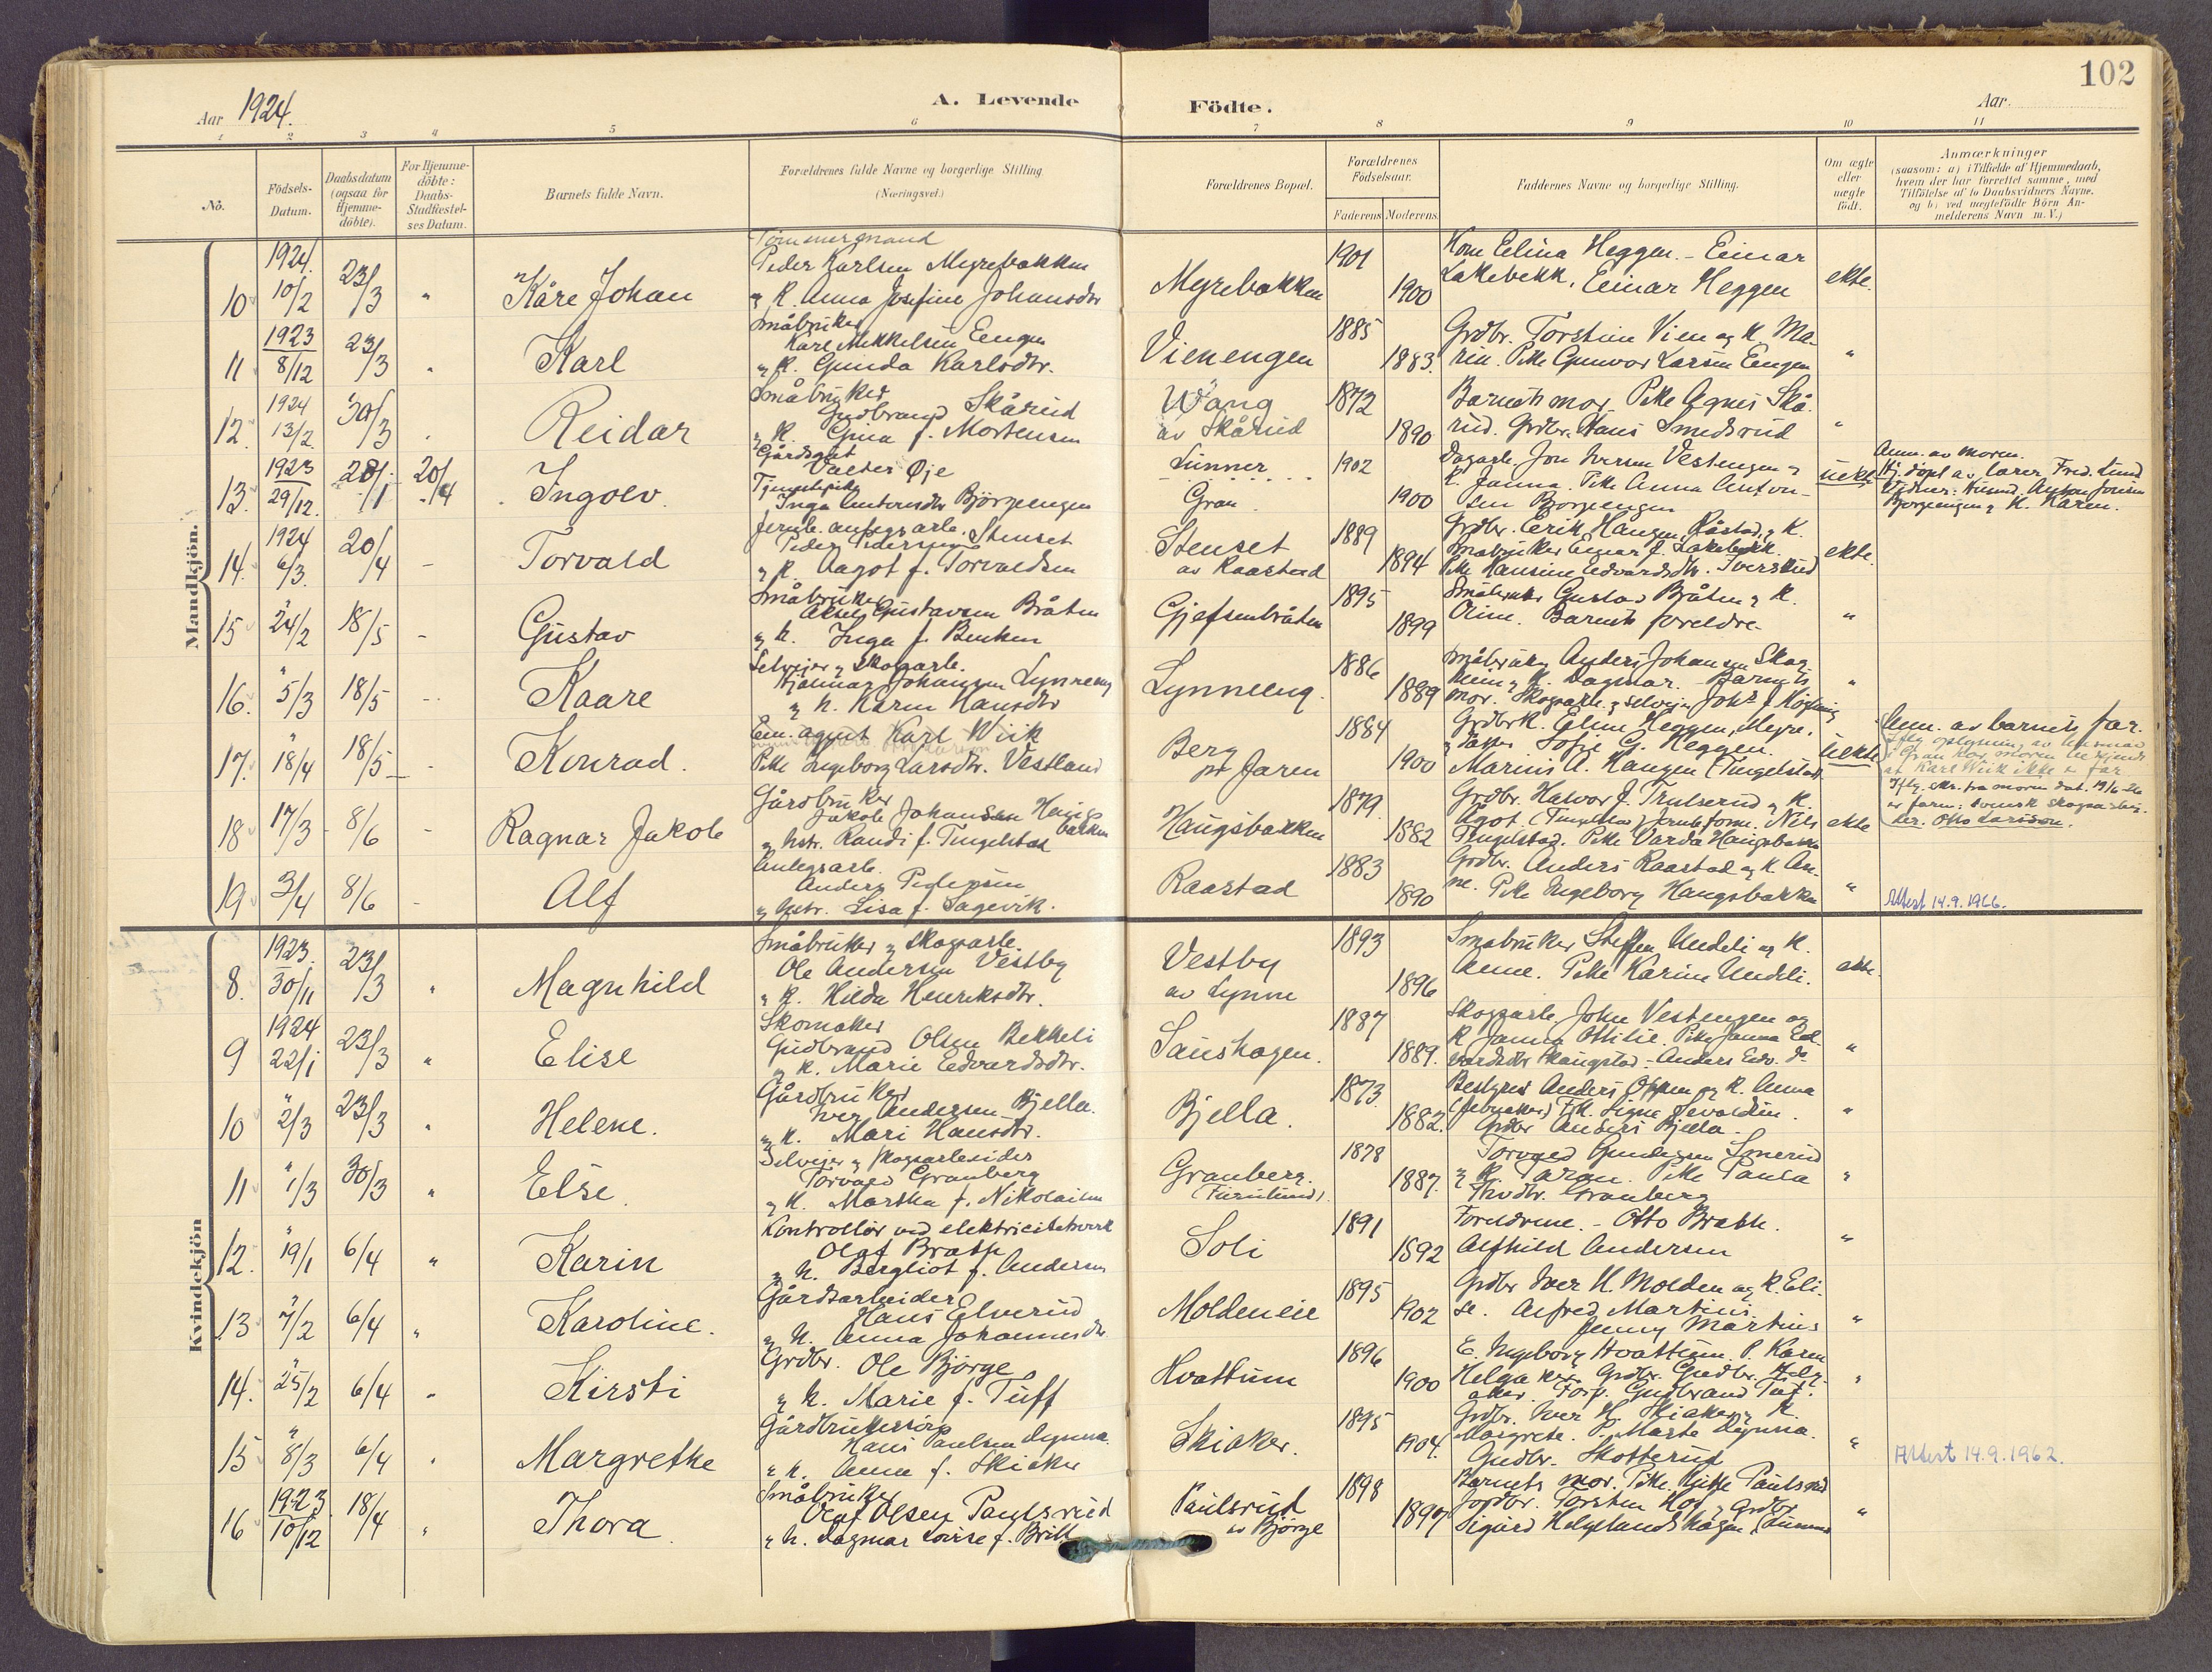 102
Aar 1924.
A. Levende
Födte.
Aar.
1 2 3 4 5 6 7 8 9 10 11
No.
Födsels-
Datum.
Daabsdatum
(ogsaa for
Hjemme-
döbte).
For Hjemme-
döbte:
Daabs-
Stadfæstel-
ses Datum.
Barnets fulde Navn.
Forældrenes fulde Navne og borgerlige Stilling
(Næringsvei.)
Forældrenes Bopæl.
Forældrenes
Födselsaar.
Faderens Moderens
Faddernes Navne og borgerlige Stilling.
Om ægte
eller
uægte
födt.
Anmærkninger
(saasom: a) i Tilfælde af Hjemmedaab,
hvem der har forrettet samme, med
Tilföielse af to Daabsvidners Navne.
og b) ved uægtefödte Börn An-
melderens Navn m. V.)
Mandkjön.
1924.
10 10/2 23/3 " Kåre Johan
Tømmermand
Peder Karlsen Myrebakken
og K. Anna Josefine Johansdtr
Myrebakken 1901 1900
Kone Elina Heggen. - Einar
Lakebekk, Einar Heggen
ekte.
1923
11 8/12 23/3 " Karl
Småbruker
Kare Mikkelsen Eengen
og K. Gunda Karlsdtr.
Vienengen 1885 1883.
Grdbr. Torstein Vien og K. Ma-
rin. Pike Gunvor Larsen Eengen
"
1924
12. 13/2 30/3 " Reidar
Småbruker
Gudbrand Skårud
og K. Gina f. Mortensen
Wang
av Skårud 1872 1890
Barnets mor. Pike Agnes Skå-
rud. Grdbr. Hans Smedsrud
"
1923
13. 29/12. 20/4 Ingolv
Gårdsgut
Valter Øje
Tjenestepike
Inga Antonsdtr Bjørgeengen
Lunner
Gran 1902 1900
Dagarb. Jon Iversen Vestengen og
K. Janna. Pike Anna Anton-
sen Bjørgeengen
uekte
Anm. av moren.
Hj.døpt av lærer Fred. Lund
Vidner: Husmd. Anton Jonsen
Bjørgeengen og K. Karen.
1924
14. 6/3. 20/4 - Torvald
Jernb. anlegsarb. Stenset
Peder Pedersen
og K. Aagot f. Torvaldsen
Stenset
av Raastad 1889 1894
Grdbr. Erik Haugen, Råstad, og K.
Småbruker Einar J. Lakebekk.
Pike Hansine Edvardsdtr. Iversrud
ekte.
15 24/2 18/5 - Gustav
Småbruker
Aksel Gustavsen Bråten
og K. Inga f. Benken
Gjefsenbråten 1895 1899
Småbruker Gustav Bråten og K.
Oline. Barnets foreldre.
"
16. 5/3 18/5 Kaare
Selveier og skogsarb.
Hjalmar Johansen Lynneeng
og K. Karen Hansdtr
Lynneeng. 1886 1889
Småbruker Anders Johansen Skog-
heim og K. Dagmar. Barnets
mor. Skogsarb. og selveier
"
17. 18/4 18/5 Konrad.
Em. agent Karl Wiik
Pike Ingeborg Larsdtr. Vestland
Berg
pr Jaren 1884 1900
Grdbr K. Eline Heggen, Myre.
Sofie G. Heggen.
Marius A. Haugen (Tingelstad)
uekte
Anm. av barnets far.
at Karl Wiik ikke er far
Iflg. skr. fra moren dat. 19/6-26
er faren: svensk skogsarbei-
der. Otto Larsson.
18 17/3 8/6 - Ragnar Jakob
Gårdbruker
Jakob Johansen Haugs-
bakken
og hstr. Randi f. Tingelstad
Haugsbakken 1879. 1882
Grdbr. Halvor J. Trulserud og K.
Agot. (Tingelstad) Nils
Tingelstad. Pike Varda Haugsbakken
ekte
19 3/4 8/6 - Alf
Anlegsarb.
Anders Pedersen
og hstr. Lisa f. Sagevik.
Raastad 1883 1890
Grdbr. Anders Raastad og K. An-
ne. Pike Ingeborg Haugsbakken
"
Attest 14.9.1966.
Kvindekjön
1923.
8. 30/11 23/3 " Magnhild
Småbruker og skogsarb.
Ole Andersen Vestby
og K. Hilda Henriksdtr.
Vestby
av Lynne 1893 1896
Småbruker Steffen Undeli og K.
Anne. Pike Karine Undeli.
ekte.
1924
9 22/1 23/3 " Elise
Skomaker
Gudbrand Olsen Bekkeli
og K. Marie Edvardsdtr.
Saushagen. 1887 1889.
Skogsarb. John Vestengen og
K Janna Ottilie. Pike Janna Ed-
vardsdtr Skaugstad - Anders Edv. do
"
10 2/3 23/3 " Helene.
Gårdbruker
Iver Andersen Bjella.
og K. Mari Hansdtr.
Bjella. 1873. 1882.
Bestyrer Anders Oppen og K. Anna
Signe
Grdbr Anders Bjella.
"
11 1/3 30/3 " Else.
Selveier og skogsarbeider
Torvald Granberg
og K. Martha f. Nikolaisen
Granberg.
(Furulund). 1878 1887.
Torvald Gundersen Smerud
og K. Paran. Pike Paula
Thvdtr. Granberg
"
12. 19/1 6/4 " Karin
Kontrollør ved elektricitetsverk
Olaf Brathe
og K. Bergliot f. Andersen
Soli 1891 1892
Foreldrene. - Otto Brathe.
Alfhild Andersen
"
13 7/2 6/4 " Karoline.
Gårdsarbeider
Hans Elverud
og K. Anna Johannesdtr.
Moldeneie 1895 1902
Grdbr Iver H. Molden og K. Eli-
se. Alfred Martins
Jenny Martins
"
14. 25/2 6/4 " Kirsti
Grdbr. Ole Bjørge
og K. Marie f. Tuff
Hvattum 1896 1900
E. Ingeborg Hvattum. P. Karen
Helgaker. Grdbr. Gudbr. Helg-
aker. Forp. Gudbrand Tuf.
"
15 8/3 6/4 " Margrethe
Gårdbrukersøn
Hans Paulsen Lynna.
og K. Anne f. Skiaker
Skiaker. 1895 1904.
Grdbr. Iver H. Skiaker og K.
Margrete. P. Marte Lynna.
Gudbr. Skotterud
"
Attest 14.9.1962.
1923.
16 10/12 18/4 " Thora
Småbruker
Olaf Olsen Paulsrud
og K. Dagmar Lovise f. Brill
Paulsrud
av Bjørge 1898 1897
Barnets mor. Pike Gitte Paulsrud
Torsten Hof, og Grdbr
Sigurd Helgelandshagen, Lunner
"